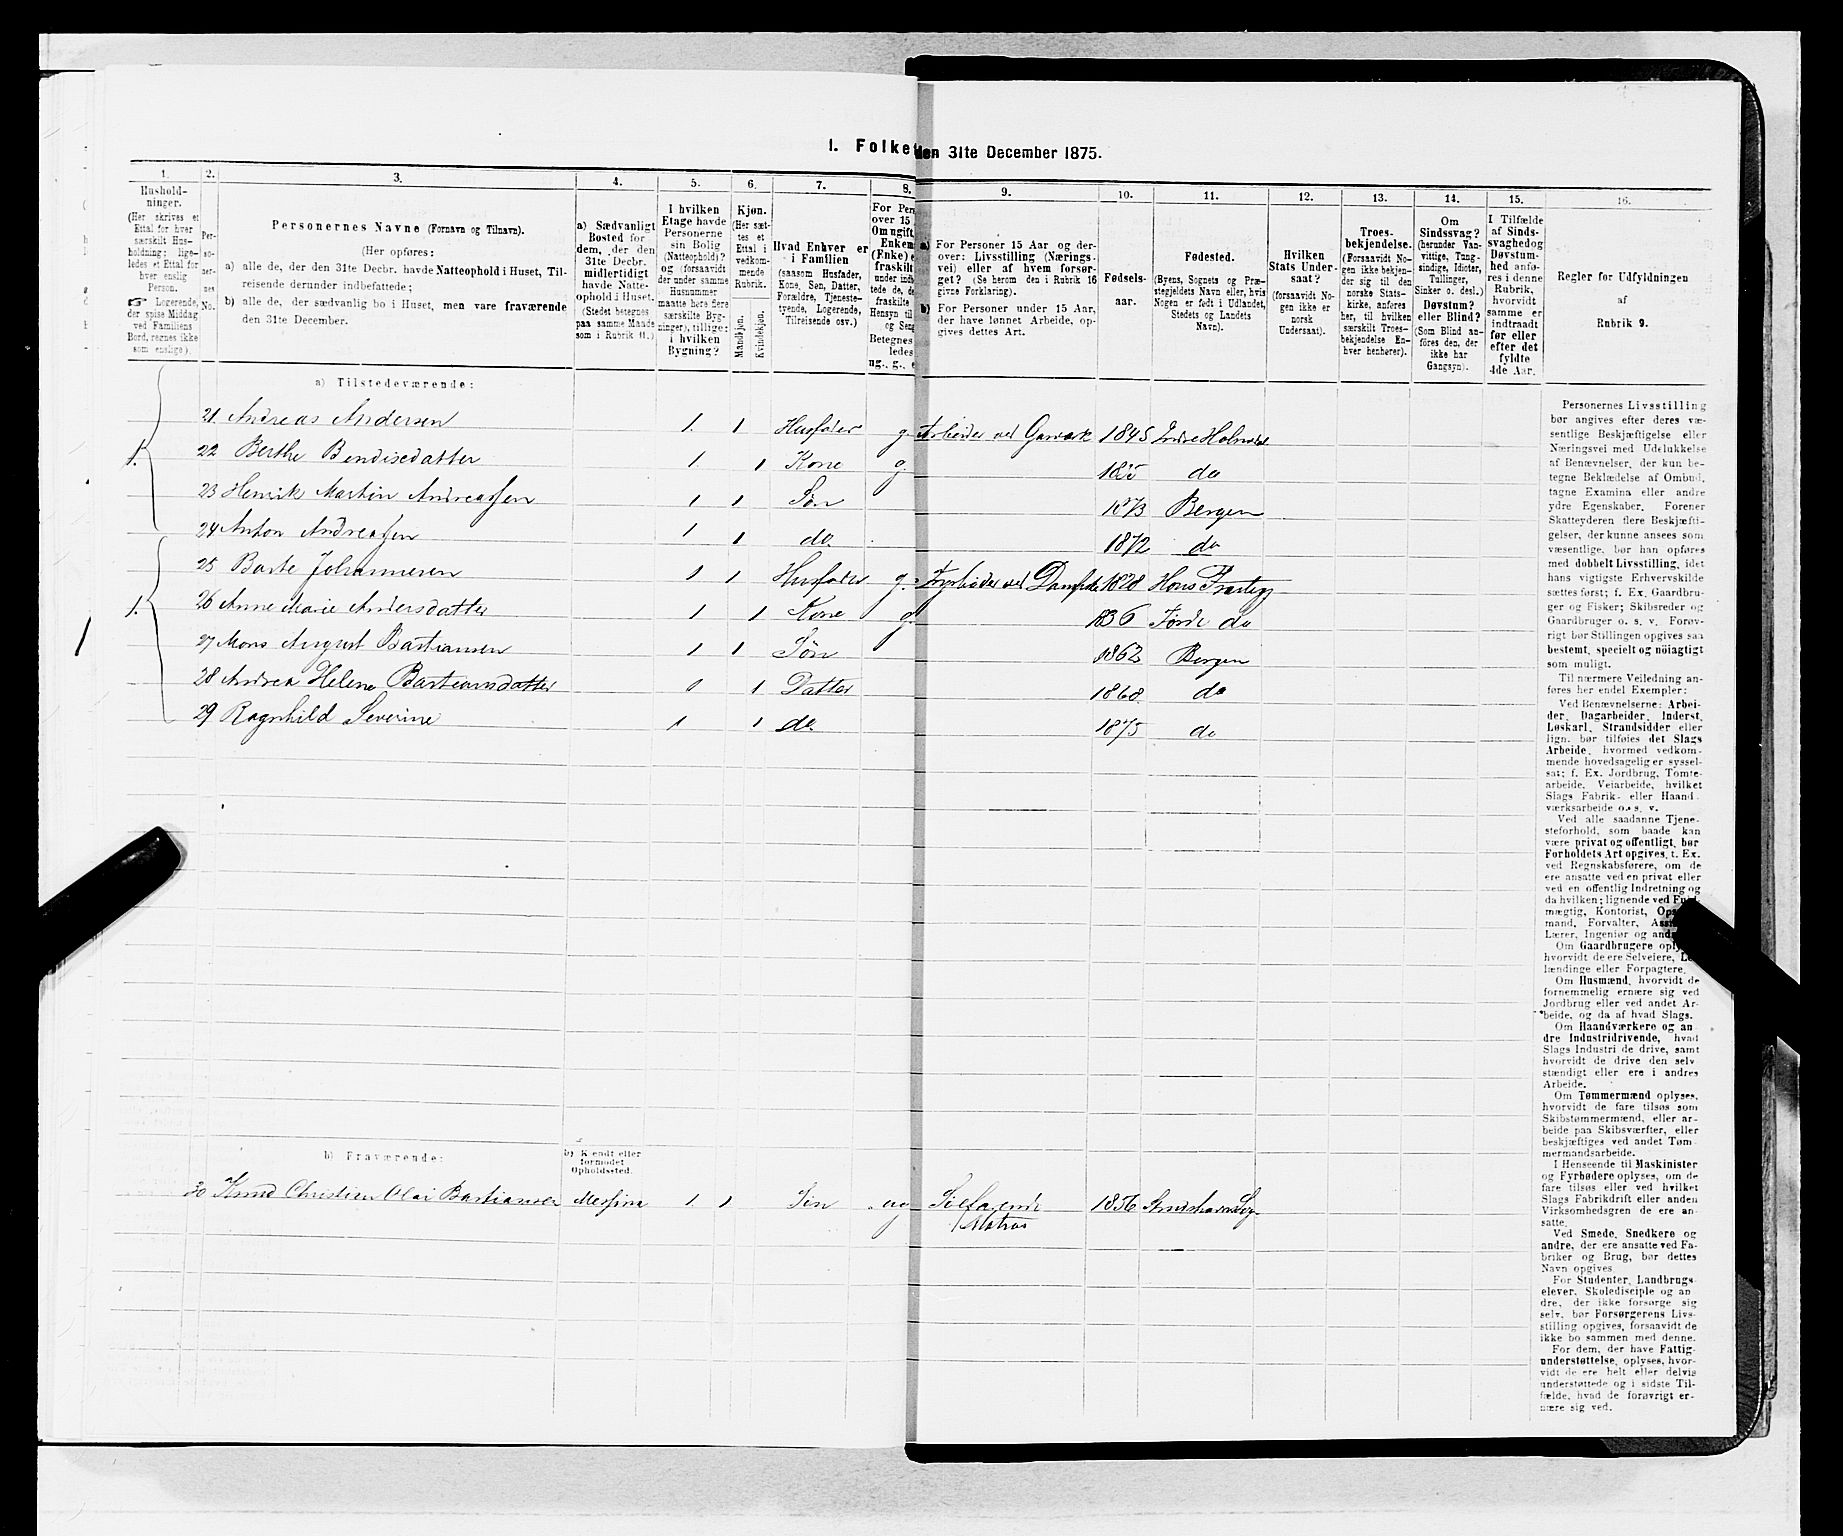 1. Folke
den 31te December 1875.
1.
2.
3.
4.
5.
6.
7.
8.
9.
10.
11.
12.
13.
14.
15.
16.
Hushold-
ninger.
(Her skrives et
Ettal for hver
særskilt Hus-
holdning; lige-
ledes et Ettal for
hver enslig
Person.
☞ Logerende,
der spise Middag
ved Familiens
Bord, regnes ikke
som enslige).
Per-
so-
ner-
nes
No.
Personernes Navne (Fornavn og Tilnavn).
(Her opføres:
a) alle de, der den 31te Decbr. havde Natteophold i Huset, Til-
reisende derunder indbefattede;
b) alle de, der sædvanlig bo i Huset, men vare fraværende
den 31te December.
a) Sædvanligt
Bosted for
dem, der den
31te Decbr.
midlertidigt
havde Natte-
ophold i Huset.
(Stedet betegnes
paa samme Maade
som i Rubrik 11.)
I hvilken
Etage havde
Personerne
sin Bolig
(Natteophold)?
og (forsaavidt
der under samme
Husnummer
maatte høre flere
særskilte Byg-
ninger), tillige:
i hvilken
Bygning?
Kjøn.
(Her sæt-
tes et
Ettal i
vedkom-
mende
Rubrik.
Mandkjøn.
Kvindekjøn.
Hvad Enhver er
i Familien
(saasom Husfader,
Kone, Søn, Datter,
Forældre, Tjeneste-
tyende, Logerende,
Tilreisende osv.)
For Per
over 15
Om ugift,
Enkem
(Enke) e
fraskilt
under ind
tede de, de
fraskilte
Hensyn til
og Seng
Betegnes
ledes
ug., g., e
a) For Personer 15 Aar og der-
over: Livsstilling (Nærings-
vei) eller af hvem forsør-
get? (Se herom den i Rubrik 16
givne Forklaring).
b) For Personer under 15 Aar,
der have lønnet Arbeide, op-
gives dettes Art.
Fødsels-
aar.
Fødested.
(Byens, Sognets og Præ-
stegjeldets Navn eller, hvis
Nogen er født i Udlandet,
Stedets og Landets
Navn).
Hvilken
Stats Under-
saat?
(forsaavidt No-
gen ikke er
norsk
Undersaat).
Troes-
bekjendelse.
(Forsaavidt No-
gen ikke bekjen-
der sig til den
norske Stats-
kirke, anføres
her, til hvilken
særskilt Troes-
bekjendelse En-
hver henhører).
Om
Sindssvag?
(herunder Van-
vittige, Tung-
sindige, Idioter,
Tullinger,
Sinker o. desl.)
Døvstum?
eller Blind?
(Som Blind an-
føres den, der
ikke har
Gangsyn).
I Tilfælde
af Sinds-
svaghed og
Døvstum-
hed anfø-
res i denne
Rubrik,
hvorvidt
samme er
indtraadt
før eller
efter det
fyldte
4de Aar.
Regler for Udfyldningen
af
Rubrik 9.
a) Tilstedeværende:
21 Andreas Andersen 1. 1 Husfader g. Arbeider ved Gasværk 1845 Indre Holmedal
1. 22 Berthe Bendixdatter 1. 1 Kone g do
23 Henrik Martin Andreassen 1 1 Søn 1873 Bergen
24 Anton Andreassen 1 1 do. 1872 do
25 Johannesen 1 1 Husfader g. Fyrbøder ved 1828
1. 26 Anne Marie Andersdatter 1 1 Kone g 1836 Førde do
27 Mons August Bastiansen 1 1 Søn 1862 Bergen
28 Andrea Helene Bastiansdatter 1 Datter 1868 do
29 Ragnhild Severine 1 1 do. 1875 do
b) Fraværende:
b) Kjendt eller
formodet
Opholdssted.
30 Knud Christian Olai Bastiansen Messina 1. 1 Søn ug Søfarende 1856
/Matros
Personernes Livsstilling
bør angives efter deres væ-
sentlige Beskjæftigelse eller
Næringsvei med Udelukkelse
af Benævnelser, der kun be-
tegne Beklædelse af Ombud,
tagne Examina eller andre
ydre Egenskaber. Forener
Skatteyderen flere Beskjæfti-
gelser, der kunne ansees som
væsentlige, bør han opføres
med dobbelt Livsstilling, idet
hans vigtigste Erhvervskilde
sættes først; f. Ex. Gaardbru-
ger og Fisker; Skibsreder og
Gaardbruger o. s. v. Forøv-
rigt bør Stillingen opgives saa
bestemt, specielt og nöiagtigt
som muligt.
Til nærmere Veiledning an-
føres her endel Exempler:
Ved Benævnelserne: Arbei-
der, Dagarbeider, Inderst,
Løskarl, Strandsidder eller
lign. bør tilføies det Slags
Arbeide, hvormed vedkom-
mende hovedsagelig er syssel-
sat; f. Ex. Jordbrug, Tomte-
arbeide, Veiarbeide, hvilket
Slags Fabrik- eller Haand-
værksarbeide o. s. v.
Ved alle saadanne Tjene-
steforhold, som baade kan
være privat og offentligt, bør
Forholdets Art opgives, t. Ex.
ved Regnskabsførere, om de
ere ansatte ved en privat eller
ved en offentlig Indretning og
da hvilken; lignende ved Fuld-
mægtig, Kontorist, Ops
mand, Forvalter, Ass
Lærer, Ingeniør og and
Om Gaardbrugere oply
hvorvidt de ere Selveiere, Le
lændinge eller Forpagtere.
Om Husmænd, hvorvidt de
fornemmelig ernære sig ved
Jordbrug eller ved andet Ar-
beide, og da af hvad Slags.
Om Haandværkere og an
dre Industridrivende, hvad
Slags Industri de drive, samt
hvorvidt de drive den selv
stændigt eller ere i andres
Arbeide.
Om Tømmermænd oplyses,
hvorvidt de fare tilsøs som
Skibstømmermænd, eller ar-
beide paa Skibsværfter, eller
beskjæftiges ved andet Tøm
mermandsarbeide.
I Henseende til Maskinister
og Fyrbødere oplyses, om de
fare tilsøs eller ved hvilket
Slags Fabrikdrift eller anden
Virksomhedsgren de ere an-
satte.
Ved Smede, Snedkere og
andre, der ere ansatte ved Fa-
briker og Brug, bør dettes
Navn opgives.
For Studenter, Landbrugs-
elever, Skoledisciple og an
dre, der ikke forsørge sig
selv, bør Forsørgerens Livs-
stilling opgives, forsaavidt de
ikke bo sammen med denne.
For dem, der have Fattig-
understøttelse, oplyses, hvor-
vidt de ere helt eller delvis
understøttede og i sidste Til-
fælde, hvad de forøvrigt er-
nære sig ved.